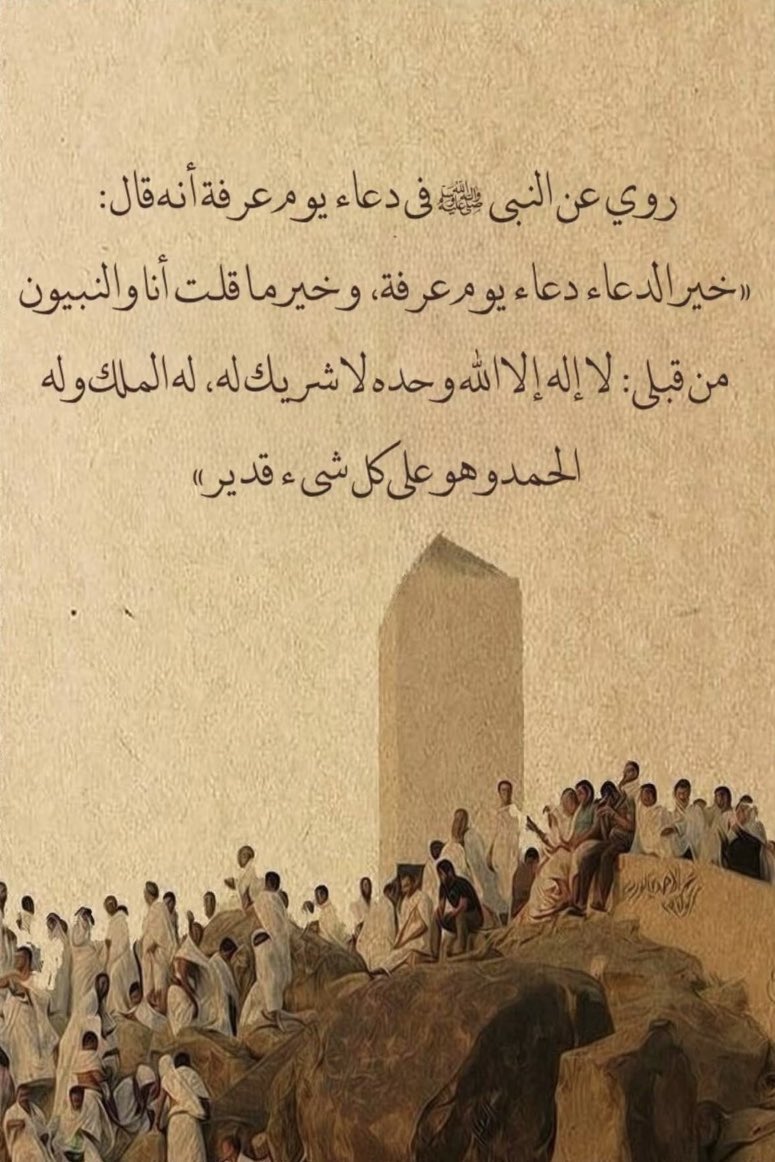 روي عن النبى ﷺ فى دعاء يوم عرفة أنه قال:
«خير الدعاء دعاء يوم عرفة، وخير ما قلت أنا والنبيون
من قبلى: لا إله إلا الله وحده لا شريك له، له الملك وله
الحمد وهو على كل شىء قدير»